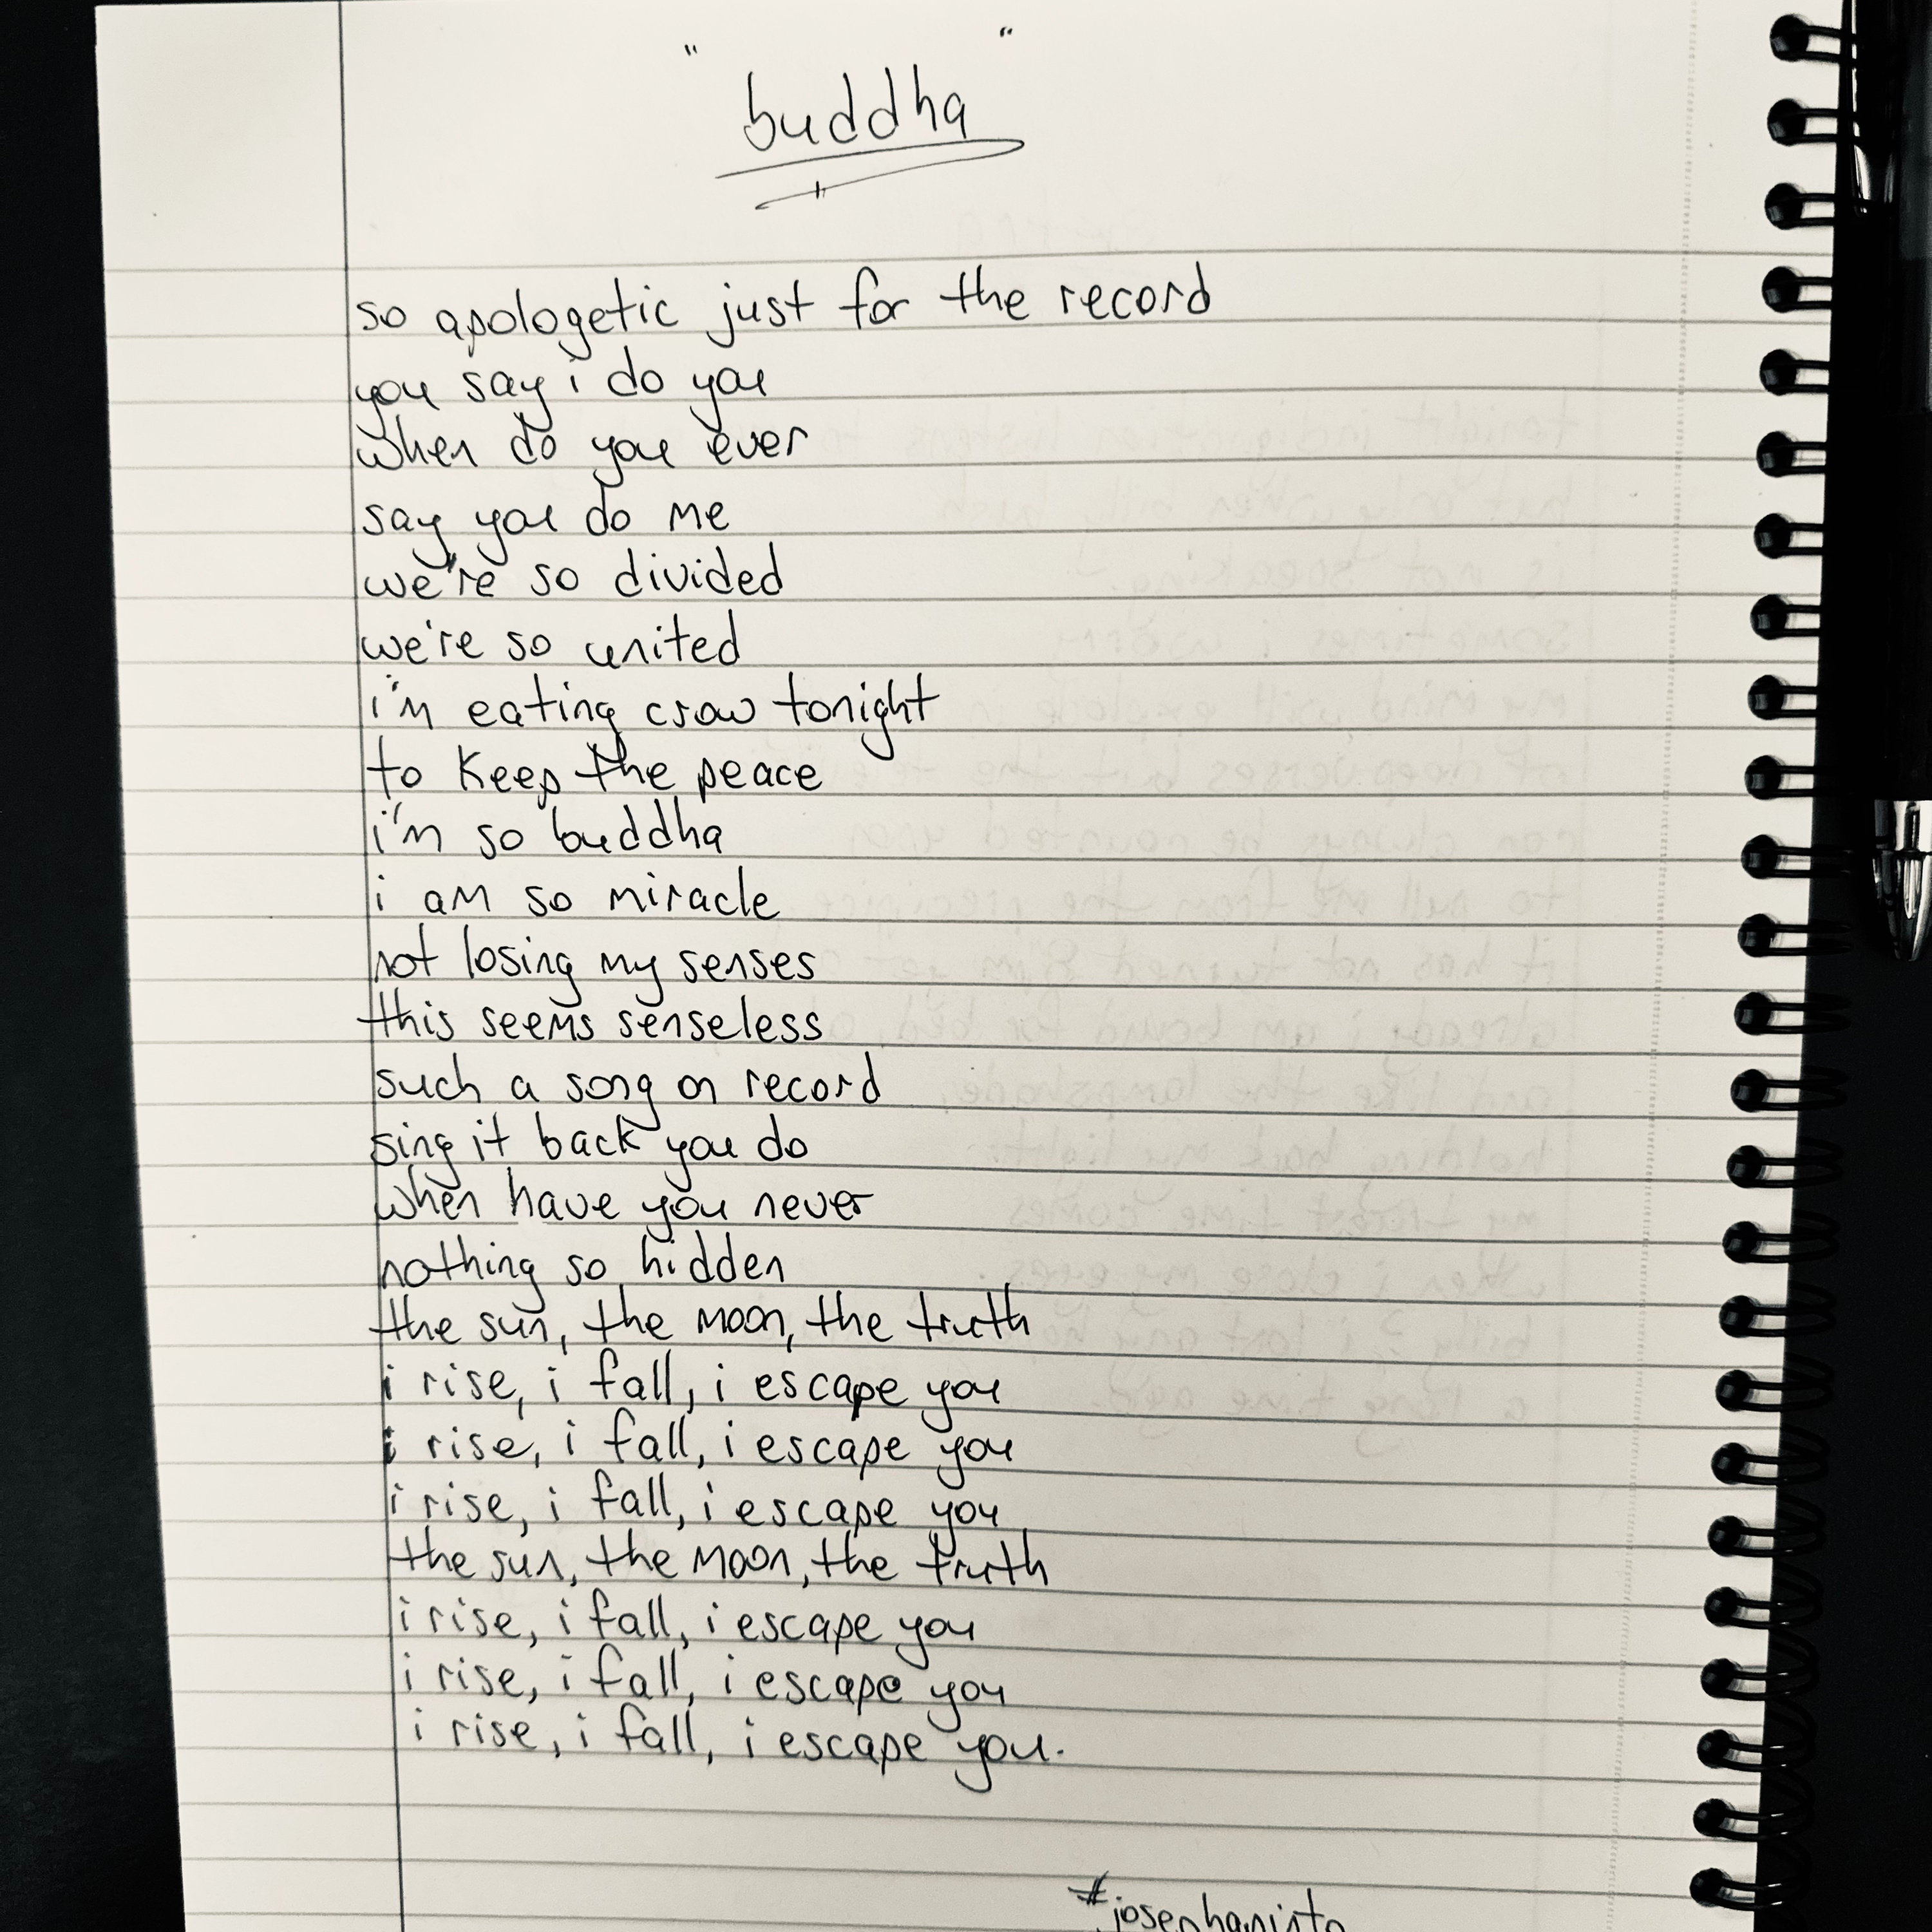 "buddha"
so apologetic just for the record
you say i do you
when do you ever
say you do me
we're so divided
we're so united
i'm eating crow tonight
to keep the peace
i'm so buddha
i am so miracle
not losing my senses
this seems senseless
such a song on record
sing it back you do
when have you never
nothing so hidden
the sun, the moon, the truth
i rise, i fall, i escape you
i rise, i fall, i escape you
i rise, i fall, i escape you
the sun, the moon, the truth
i rise, i fall, i escape you
i rise, i fall, i escape you
i rise, i fall, i escape you.